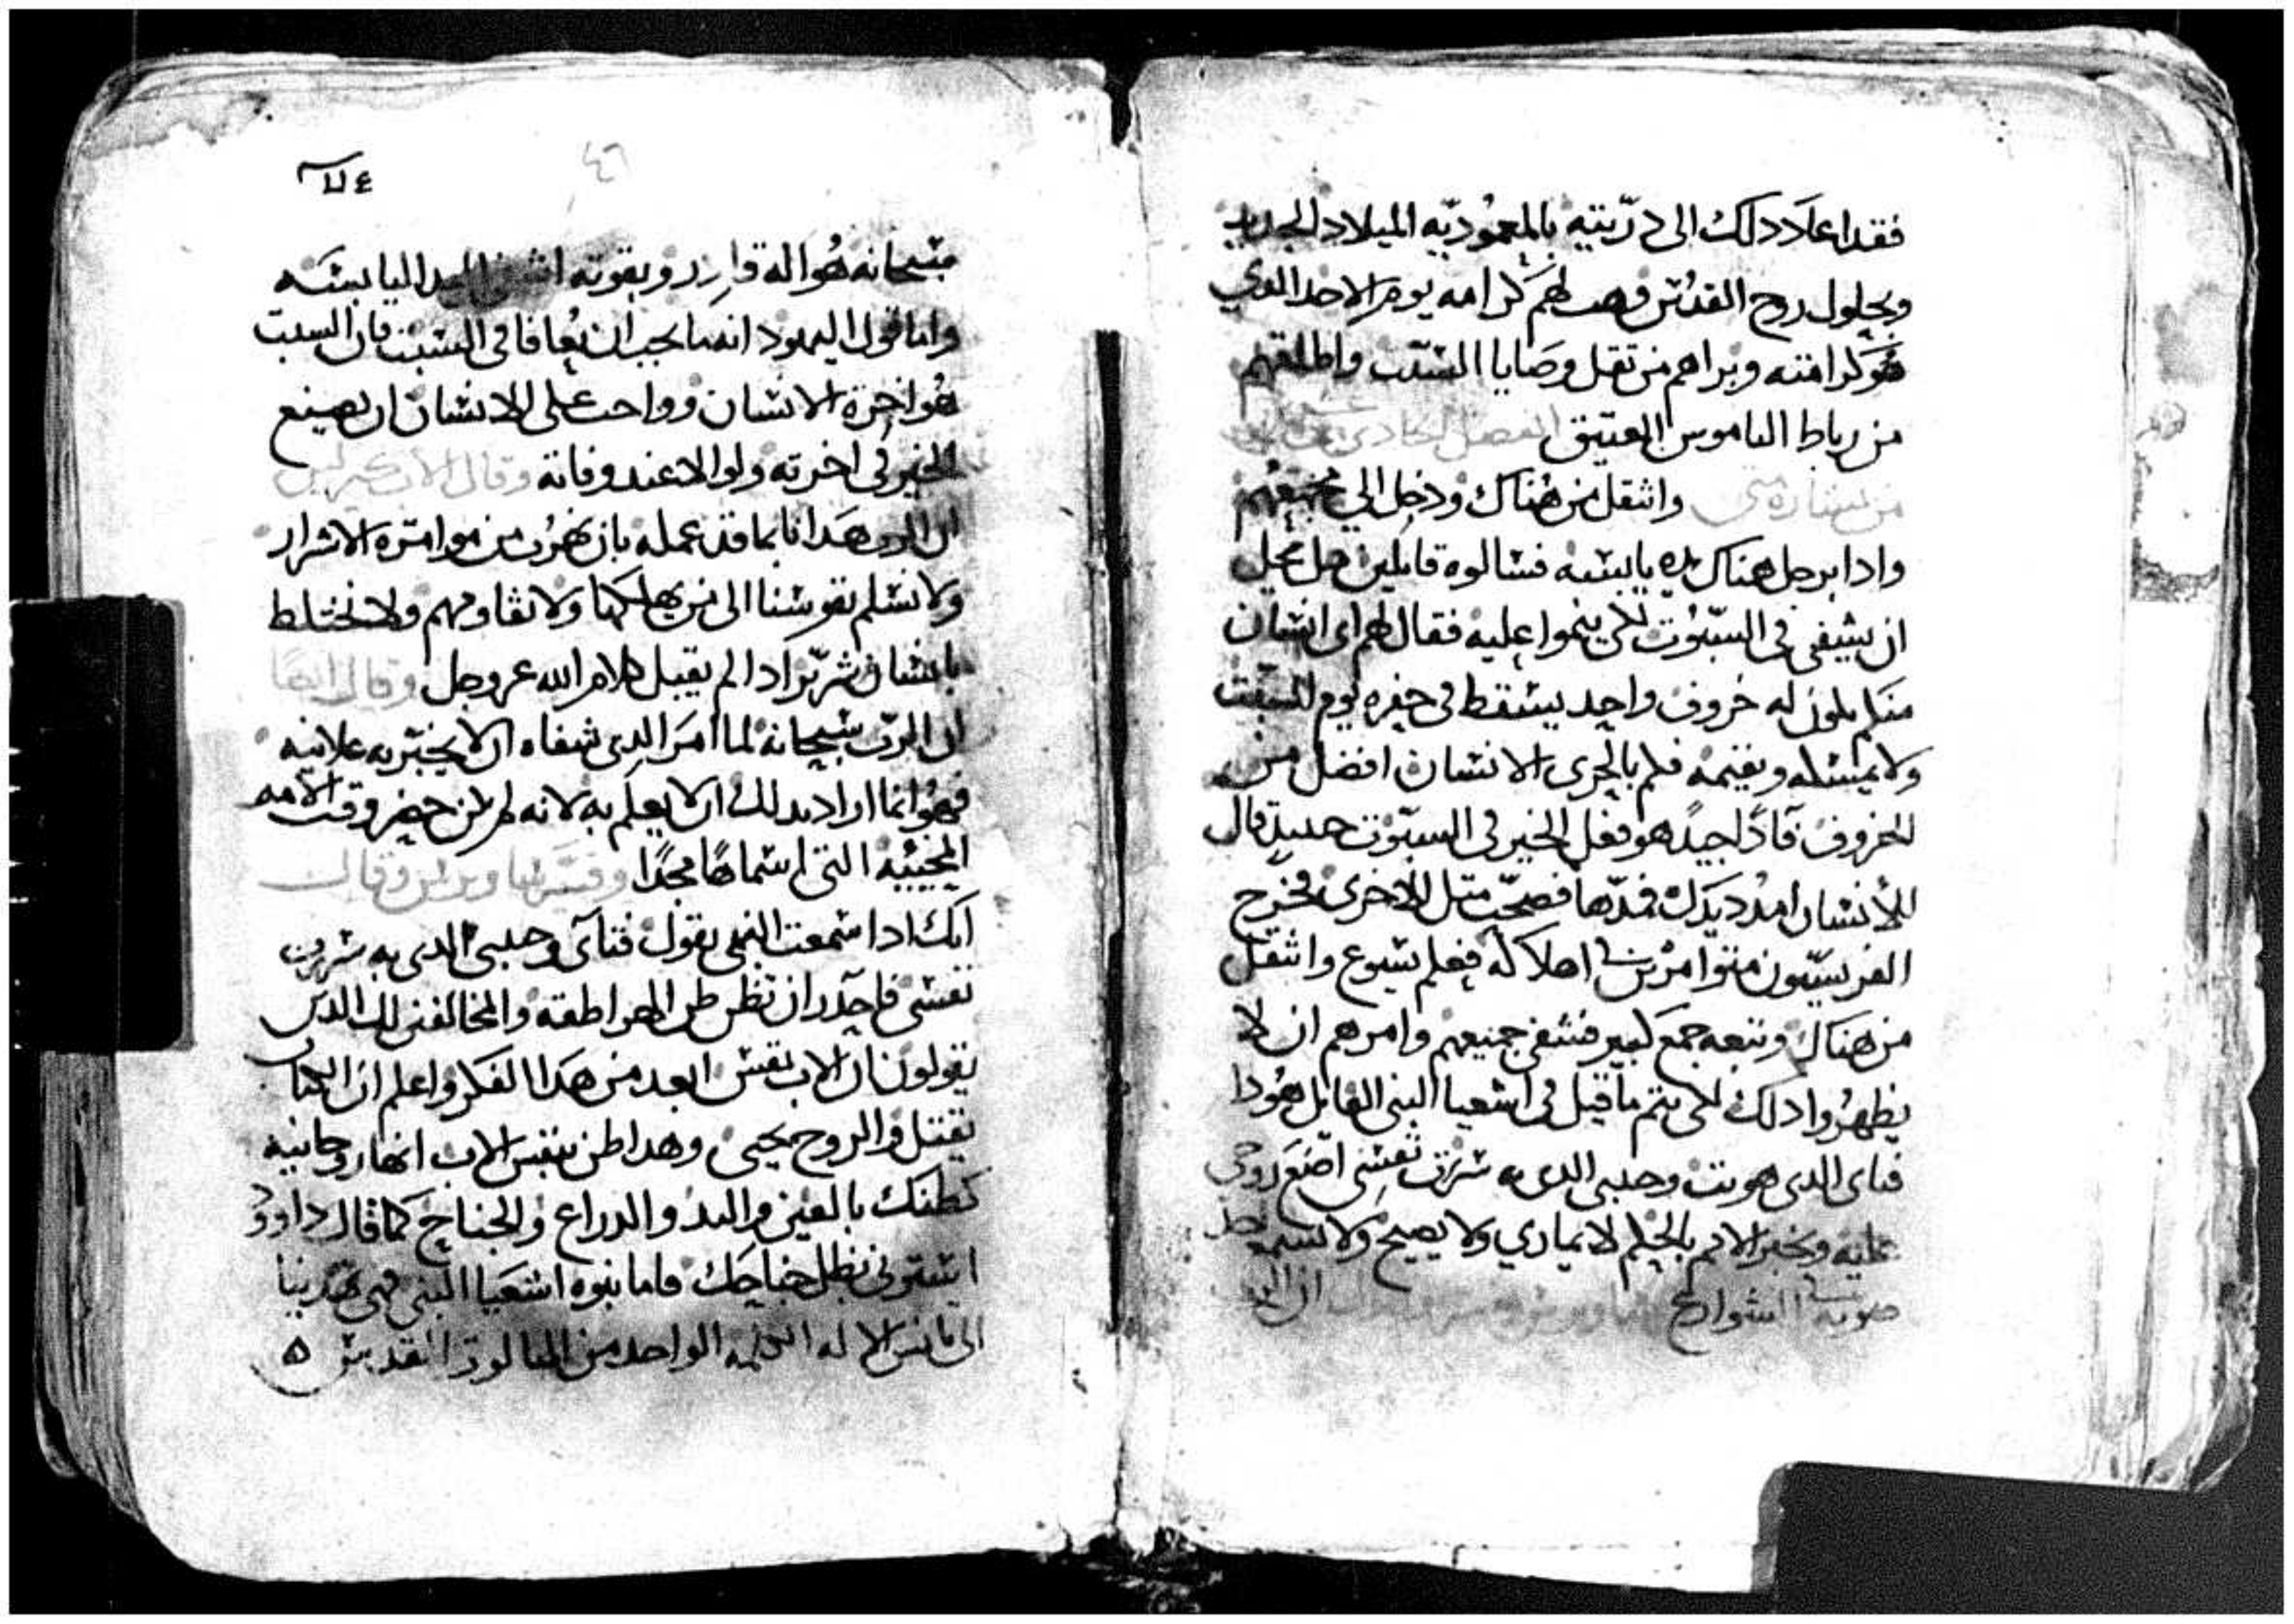 فقد اعاد دلك الى درّيته بالمعموديّه الميلاد الجديد
وبحلول روح القدس وهب لهم كرامه يوم الاحد الدي
هو كرامته وبراهم من تقل وصايا السبت واطلقهم
من رباط الناموس العتيق الفصل الحادي
من بشاره متى وانتقل من هناك ودخل الى مجمعهم
وادا برجل هناك يده يابسه فسالوه قايلين هل يحل
ان يشفى في السبوت لكي ينموا عليه فقال لهم اي انسان
منكم يكون له خروف واحد يسقط في حفره يوم السبت
ولا يمسكه ويقيمه فكم بالحرى الانسان افضل من
الخروف فادًا جيدًا هو فعل الخير في السبوت حينيد قال
للانسان امدد يدك فمدّها فصحّت متل الاخرى فخرج
الفريسيون متوامرين اهلاكه فعلم يسوع وانتقل
من هناك وتبعه جمع كبير فشفى جميعهم وامرهم ان لا
يظهروا دلك لكي يتم ما قيل في اشعيا النبي القايل هودا
فتاى الدى هويت وحبيبي الدى به سرت نفسي اضع روحى
عليه ويخبر الامم بالحكم لا يماري ولا يصيح ولا
صوته الشوارع
٤٦
سبحانه هو اله قادر وبقوته اليد اليابسه
واما قول اليهود انه ما يجب ان يعافا في السبت فان السبت
هو اخرة الانسان وواجب على الانسان ان يصنع
الخير في اخرته ولو الا عند وفاته وقال
ان الرب هدانا بما قد عمله بان نهرب من موامرة الاشرار
ولا نسلم نفوسنا الى من يهلكنا ولا نقاومهم ولا نختلط
بانسان شرّير ادا لم يقبل كلام الله عز وجل وقال ايضًا
ان الرب سبحانه لما امر الدي شفاه ان لا يخبر به علانيه
فهو انما اراد بدلك ان لا يعلم به لانه لم يكن حضر وقت الامه
المحييه التي اسماها مجدًا وقال
انك ادا سمعت النبي يقول فتاى وحبيبى الدى به سرت
نفسى فاحدر ان تظن ظن الهراطقه والمخالفين لك الدين
يقولون ان الاب نفس ابعد من هدا الفكر واعلم ان الكتاب
يقتل والروح يحيى وهدا ظن بنفس الاب انها روحانيه
كظنك بالعين واليد والدراع والجناح كما قال داوود
استرني بظل جناحك فاما نبوه اشعيا النبي فهي تهدينا
الى الاله الواحد من التالوت القديس ه